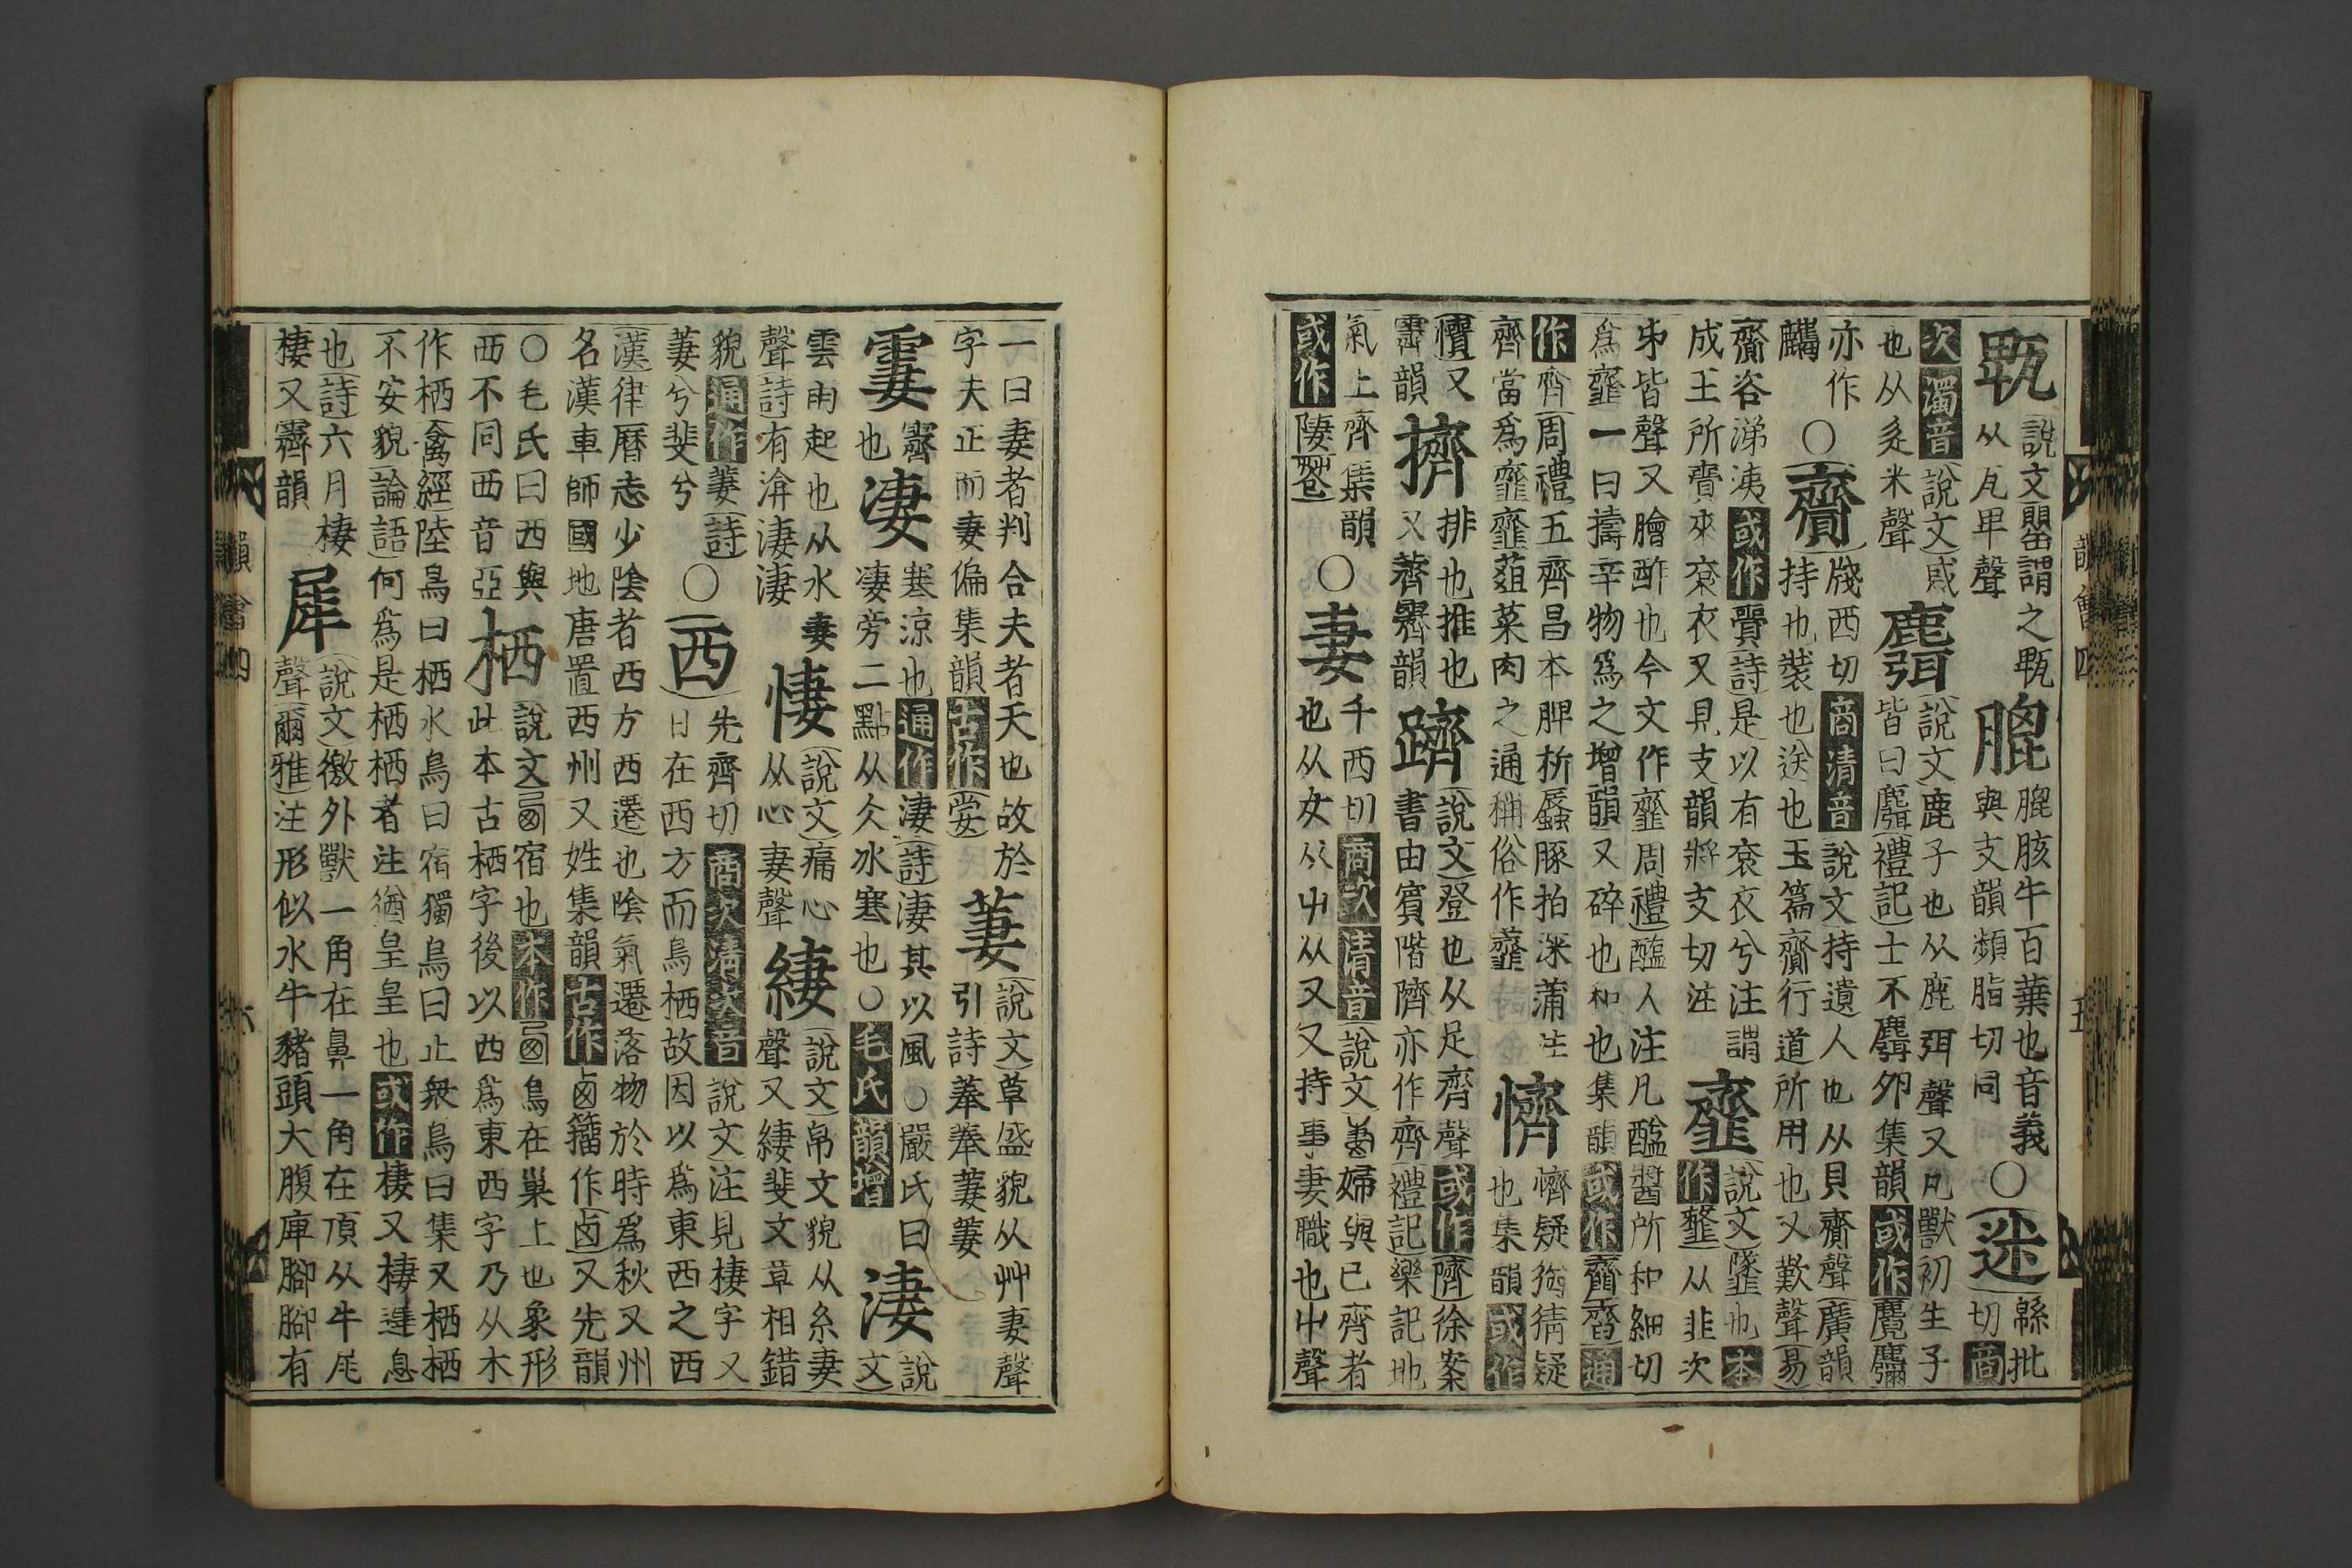 甈 説文罌謂之甈
从瓦𤰞聲
膍 膍胲牛百葉也音義
與支韻頻脂切同
○迷 緜批切商
次濁音 説文惑
也从辵米聲
麛 説文鹿子也从鹿弭聲又凡獸初生子
皆曰麛禮記士不麛卵集韻或作麑麝
亦作
麢
○齎 牋西切商清音説文持遺人也从貝齊聲廣韻
持也裝也送也玉篇齎行道所用也又歎聲易
齎咨涕洟或作賷詩是以有衮衣兮注謂
成王所賷來衮衣又見支韻將支切注
齏 説文墜也本
作韲从韭次
𠂔皆聲又膾酢也今文作齏周禮醯人注凡醯醬所和細切
爲韲一曰擣辛物爲之增韻又碎也和也集韻或作齎齍通
作齊周禮五齊昌本脾析蜃豚拍深蒲注
齊當爲齏齏葅菜肉之通稱俗作虀
懠 懠疑猶猜疑
也集韻或作
懫又
霽韻
擠 排也推也
又薺霽韻
躋 説文登也从足齊聲或作隮徐案
書由賓階隮亦作齊禮記樂記地
氣上齊集韻
或作𨻻
○妻 千西切商次清音説文婦與己齊者
也从女从屮从又又持事妻職也屮聲
一曰妻者判合夫者天也故於
字夫正而妻偏集韻古作㛂
萋 説文草盛貌从艸妻聲
引詩菶菶萋萋
霋 霽
也
凄 寒涼也通作淒詩淒其以風○嚴氏曰
凄旁二點从仌冰寒也○毛氏韻增
淒 説
文
雲雨起也从水妻
聲詩有渰淒淒
悽 説文痛心
从心妻聲
緀 説文帛文貌从糸妻
聲又緀斐文章相錯
貌通作萋詩
萋兮斐兮
○西 先齊切商次清次音説文注見棲字又
日在西方而鳥栖故因以爲東西之西
漢律曆志少陰者西方西遷也陰氣遷落物於時爲秋又州
名漢車師國地唐置西州又姓集韻古作卤籀作卥又先韻
○毛氏曰西與
西不同西音亞
栖 説文𠧧宿也本作𠧧鳥在巢上也象形
此本古栖字後以西爲東西字乃从木
作栖禽經陸鳥曰栖水鳥曰宿獨鳥曰止衆鳥曰集又栖栖
不安貌論語何爲是栖栖者注猶皇皇也或作棲又棲遲息
也詩六月棲
棲又霽韻
犀 説文徼外獸一角在鼻一角在頂从牛尾
聲爾雅注形似水牛豬頭大腹庳腳腳有
韻會四
五
韻會四
六